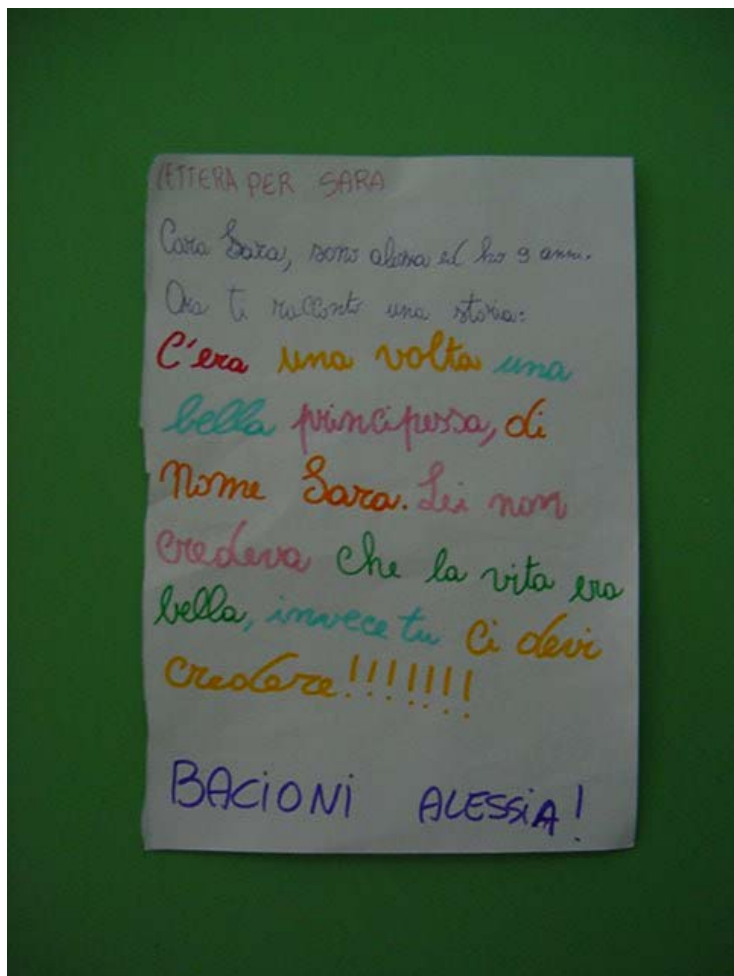 LETTERA PER SARA
Cara Sara, sono alessia ed ho 9 anni.
Ora ti racconto una storia:
C'era una volta una
bella principessa, di
nome Sara. Lei non
credeva che la vita era
bella, invece tu ci devi
credere!!!!!!!
BACIONI ALESSIA!